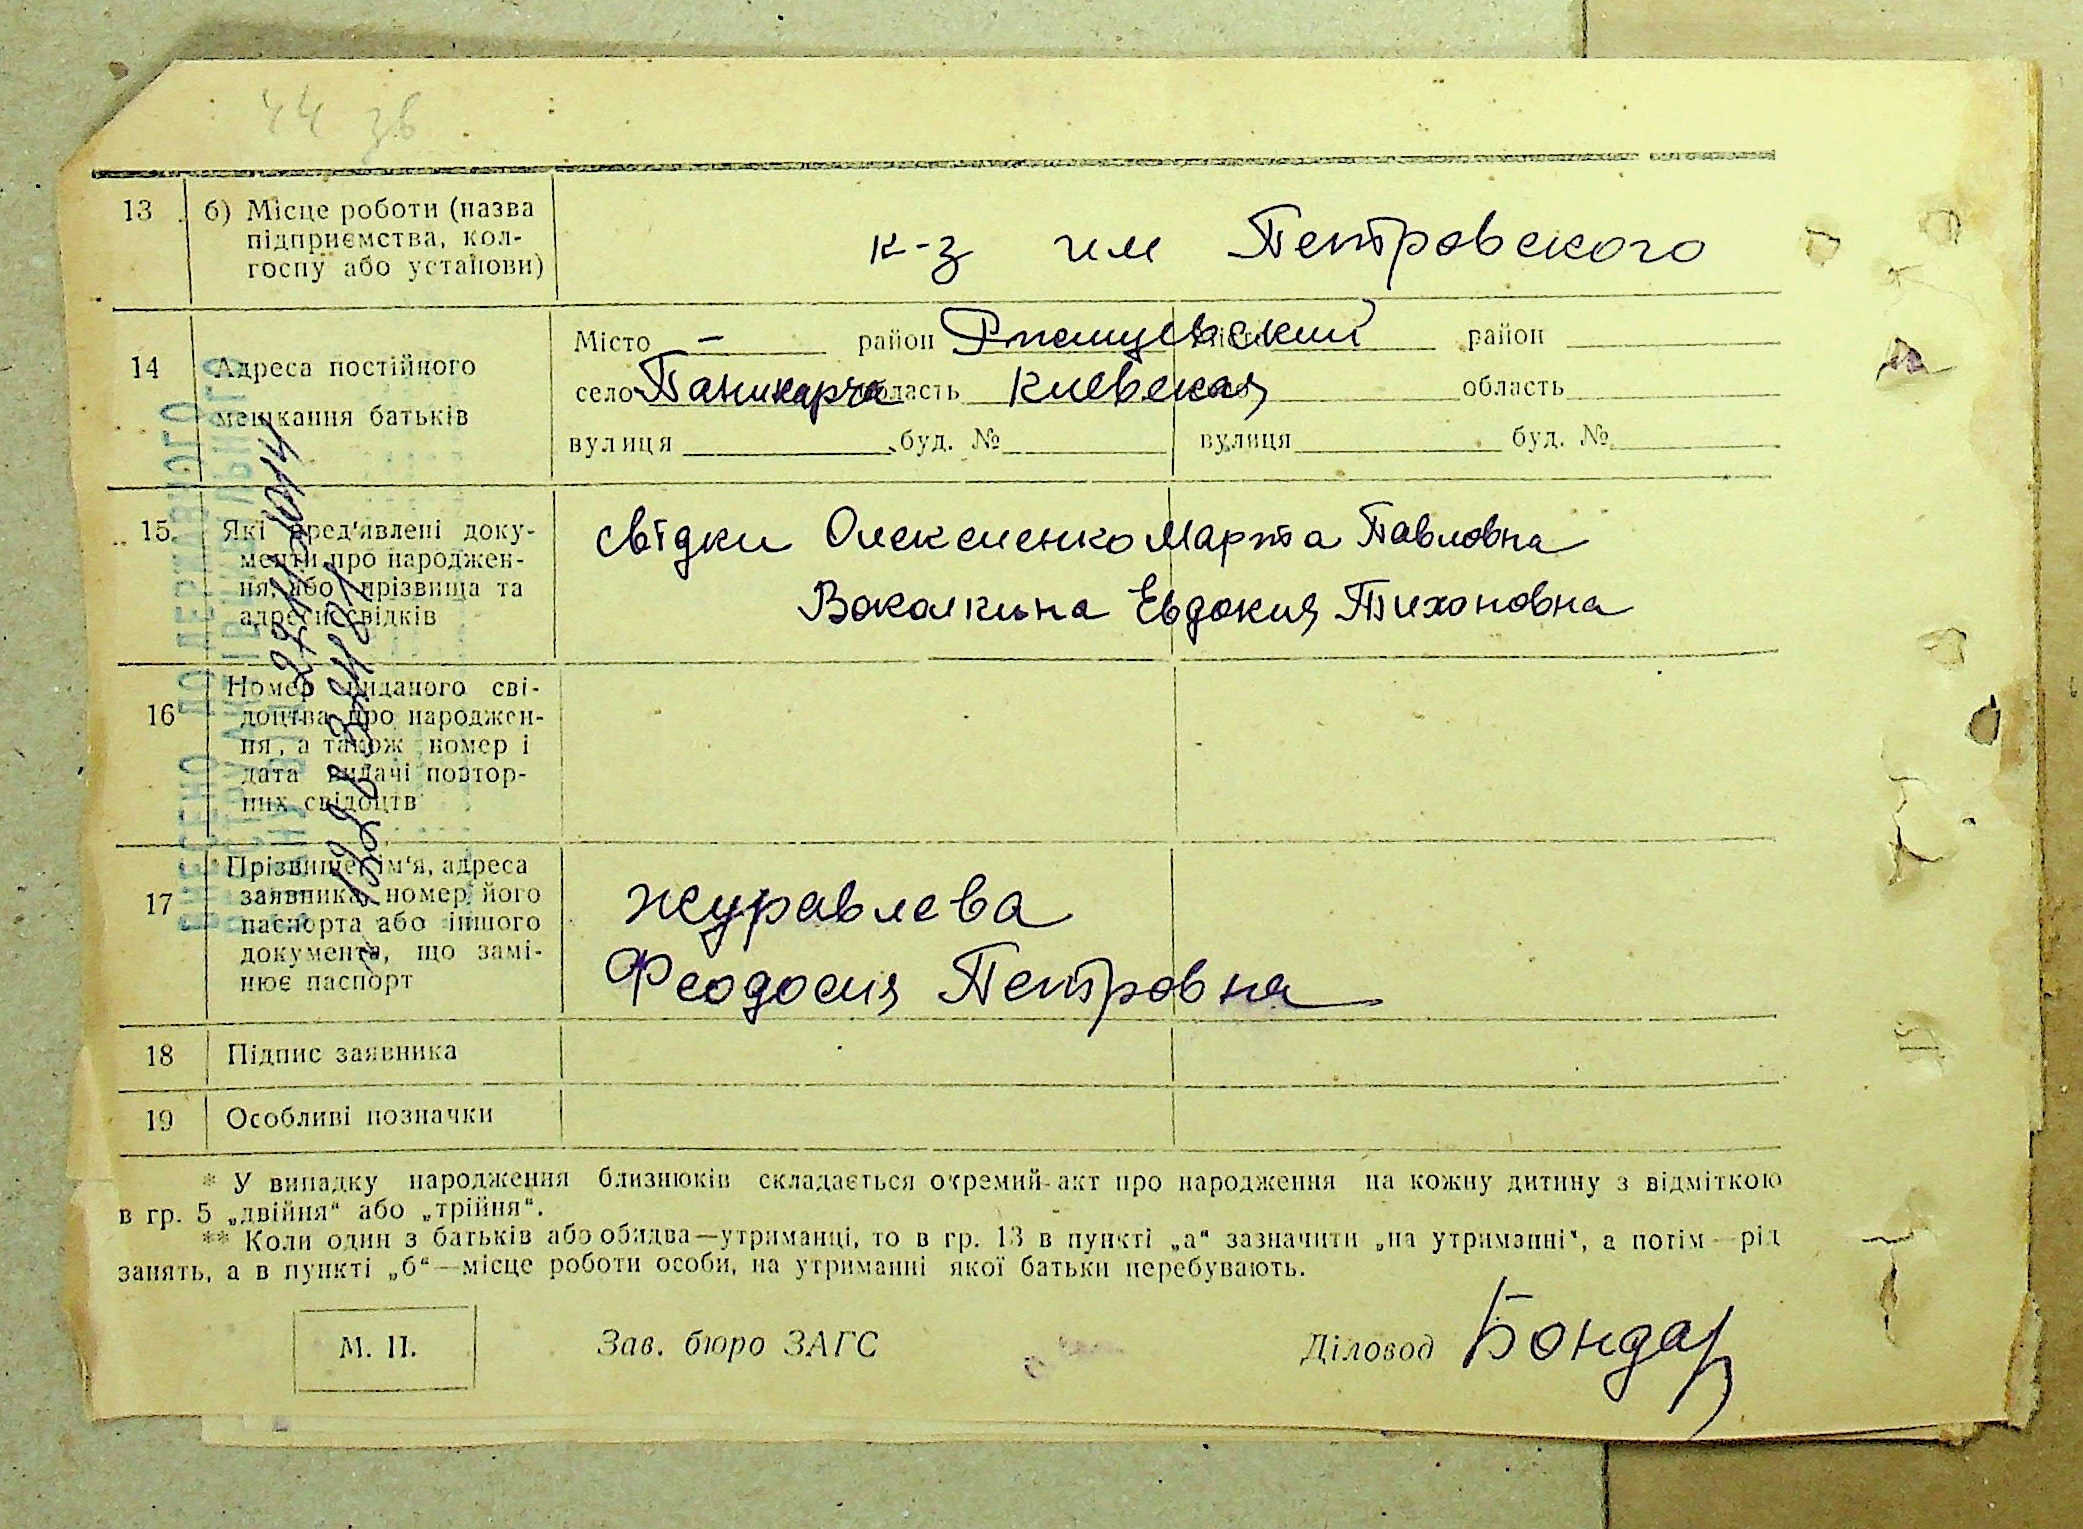 44 зв
13 б) Місце роботи (назва
підприємства, кол-
госпу або установи)
к-з им Петровского
14 Адреса постійного
мешкання батьків
Місто – район Ржищевский район
село Паникарча область Киевская область
вулиця буд. № вулиця буд. №
15. Які пред'явлені доку-
менти про народжен-
ня, або прізвища та
адреси свідків
свідки Олексиенко Марта Павловна
Вокалкина Евдокия Тихоновна
16 Номер виданого сві-
доцтва про народжен-
ня, а також номер і
дата видачі повтор-
них свідоцтв
17 Прізвище, ім'я, адреса
заявника, номер його
паспорта або іншого
документа, що замі-
нює паспорт
Журавлева
Феодосия Петровна
18 Підпис заявника
19 Особливі позначки
* У випадку народження близнюків складається окремий акт про народження на кожну дитину з відміткою
в гр. 5 „двійня“ або „трійня“.
** Коли один з батьків або обидва—утриманці, то в гр. 13 в пункті „а“ зазначити „на утриманні“, а потім—рід
занять, а в пункті „б“—місце роботи особи, на утриманні якої батьки перебувають.
М. П. Зав. бюро ЗАГС Діловод Бондар
ВНЕСЕНО ДО ДЕРЖАВНОГО